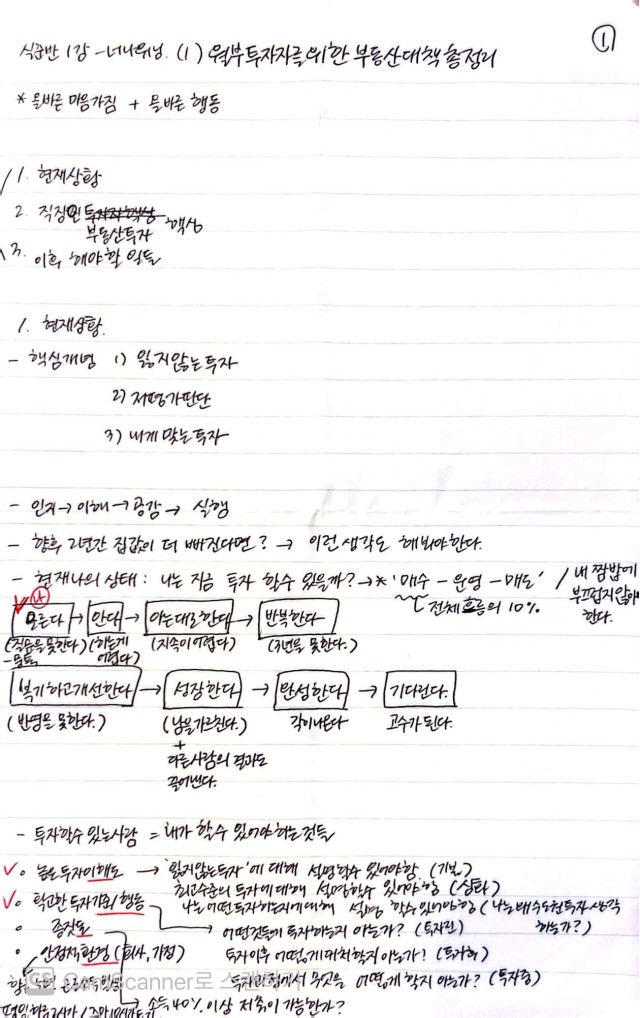 ①
1강 - 너나위님. (1) 월부투자자를 위한 부동산대책 총정리
* 올바른 마음가짐 + 올바른 행동
1. 현재상황
2. 직장인 부동산투자 핵심
3. 이후 해야할 일들
1. 현재상황.
- 핵심개념 1) 잃지않는 투자
2) 저평가판단
3) 내게 맞는 투자
- 인지 → 이해 → 공감 → 실행
- 향후 2년간 집값이 더 빠진다면? → 이런 생각도 해봐야한다.
- 현재 나의 상태 : 나는 지금 투자 할수 있을까? → * '매수 - 운영 - 매도' / 내 짬밥에
전체 흐름의 10% 부끄럽지않아야
한다.
④
모른다 → 안다 → 아는대로한다 → 반복한다
(적응을 못한다) (하는게 (지속이 어렵다) (3년을 못한다.)
어렵다)
복기하고개선한다 → 성장한다 → 완성한다 → 기다린다.
(반영을 못한다.) (남을가르친다.) 고수가 된다.
+
다른사람의 결과도
끌어낸다.
- 투자할수 있는사람 = 내가 할수 있어야 하는것들
✓ 높은투자이해도 → '잃지않는투자'에 대해 설명할수 있어야함. (기본)
최고수준의 투자에대해 설명할수 있어야 함
✓ 확고한 투자기준/행동 나는 어떤투자하는지에대해 설명 할수있어야함
하는가?)
종잣돈 어떤것들에 투자하는지 아는가? (투자전)
안정적환경 (회사, 가정) 투자이후 어떻게 대처할지 아는가! (투자후)
무엇을 어떻게 할지 아는가? (투자중)
CS CamScanner로 스캔하기
→ 소득 40% 이상 저축이 가능한가?